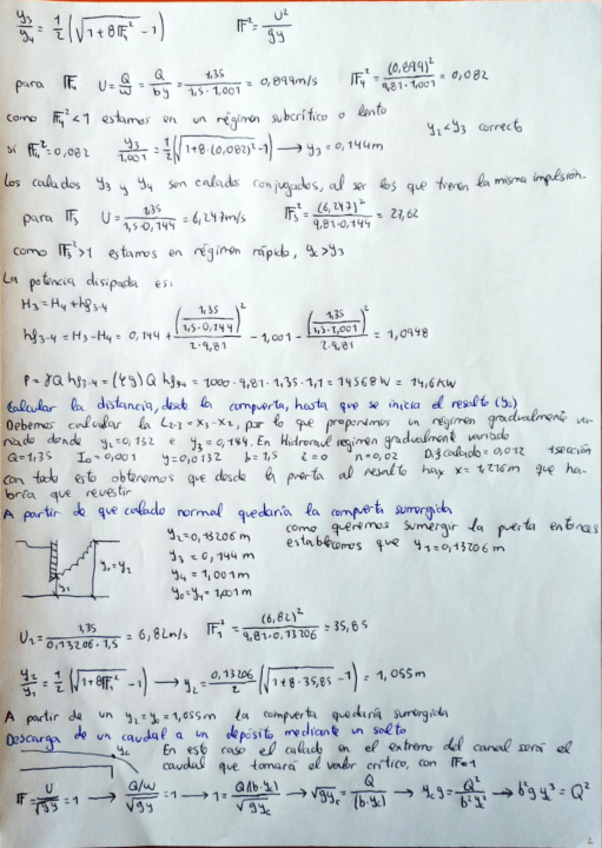 y3/y4 = 1/2(√(1+8𝔽4²) -1)    𝔽² = U²/gy
para 𝔽4  U = Q/W = Q/by = 1,35/(1,5·1,001) = 0,899m/s    𝔽4² = (0,899)²/(9,81·1,001) = 0,082
como 𝔽4²<1 estamos en un régimen subcrítico o lento    y2<y3 correcto
si 𝔽4²=0,082  y3/1,001 = 1/2(√(1+8·(0,082)²)-1) → y3=0,144m
Los calados y3 y y4 son calados conjugados, al ser los que tienen la misma impulsión.
para 𝔽3  U = 1,35/(1,5·0,144) = 6,247m/s    𝔽3² = (6,247)²/(9,81·0,144) = 27,62
como 𝔽3²>1 estamos en régimen rápido, yc>y3
La potencia disipada es:
H3=H4+hf3-4
hf3-4=H3-H4= 0,144 + (1,35/(1,5·0,144))²/(2·9,81) - 1,001 - (1,35/(1,5·1,001))²/(2·9,81) = 1,0948
P = γQ hf3-4 = (ρg) Q hf3-4 = 1000·9,81·1,35·1,1 = 14568W = 14,6KW
Calcular la distancia, desde la compuerta, hasta que se inicia el resalto (y3)
Debemos calcular la L2-3 = x3-x2, por lo que proponemos un régimen gradualmente va-
riado donde y2=0,132 e y3=0,144. En Hidrouval regimen gradualmente variado
Q=1,35  I0=0,001  y=0,0132  b=1,5  z=0  n=0,02  Dif calado=0,012  1 sección
con todo esto obtenemos que desde la puerta al resalto hay x=1,216m que ha-
bría que revestir
A partir de que calado normal quedaría la compuerta sumergida
y2=0,13206 m
y3=0,144 m
y4=1,001m
y0=y4=1,001m
como queremos sumergir la puerta entonces
establecemos que y1=0,13206m
y0=y2
y1
U1 = 1,35/(0,13206·1,5) = 6,82m/s    𝔽1² = (6,82)²/(9,81·0,13206) = 35,85
y2/y1 = 1/2(√(1+8𝔽1²) -1) → y2 = 0,13206/2 (√(1+8·35,85) -1) = 1,055m
A partir de un y2=y0=1,055m la compuerta quedaría sumergida
Descarga de un caudal a un depósito mediante un salto
yc
En este caso el calado en el extremo del canal será el
caudal que tomará el valor crítico, con 𝔽=1
𝔽 = U/√gy = 1 → (Q/W)/√gy = 1 → 1 = Q/(b·yc)/√gyc → √gyc = Q/(b·yc) → yc g = Q²/b²yc² → b²g yc³ = Q²
2